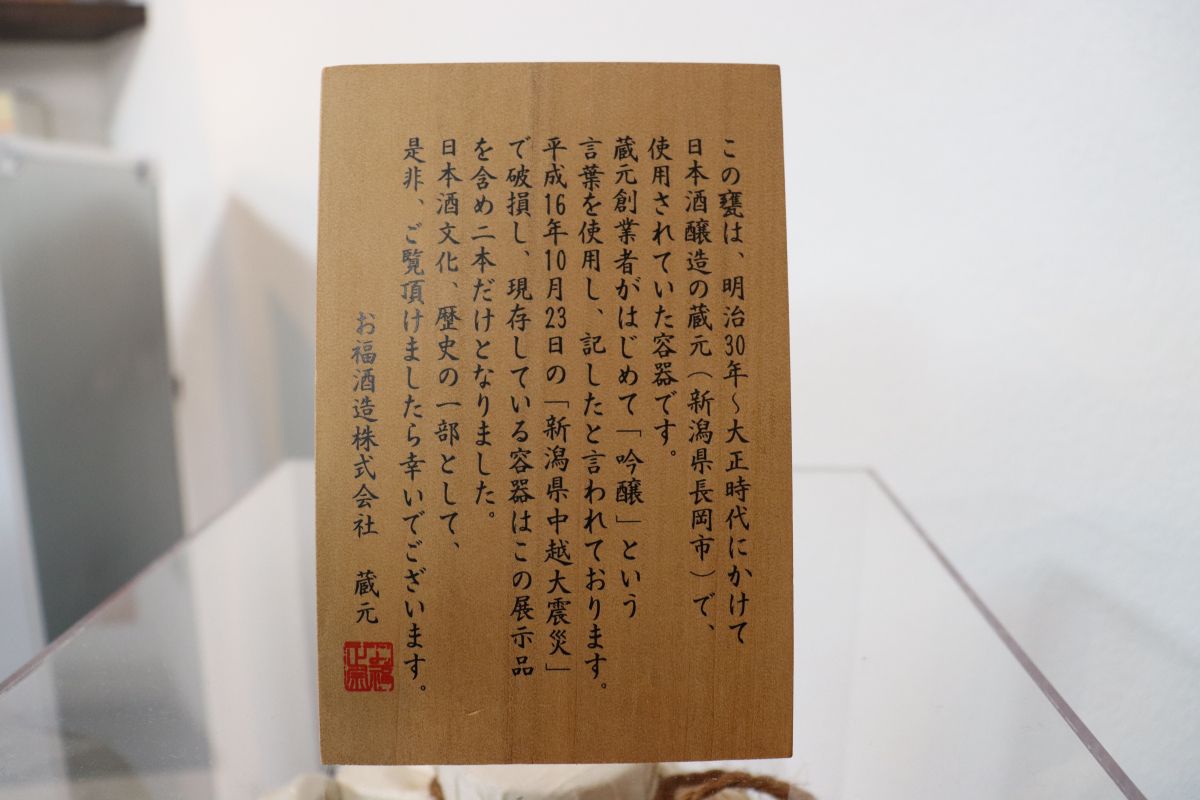 この甕は、明治30年～大正時代にかけて
日本酒醸造の蔵元（新潟県長岡市）で、
使用されていた容器です。
蔵元創業者がはじめて「吟醸」という
言葉を使用し、記したと言われております。
平成16年10月23日の「新潟県中越大震災」
で破損し、現存している容器はこの展示品
を含め二本だけとなりました。
日本酒文化、歴史の一部として、
是非、ご覧頂けましたら幸いでございます。
お福酒造株式会社　蔵元
お福正宗